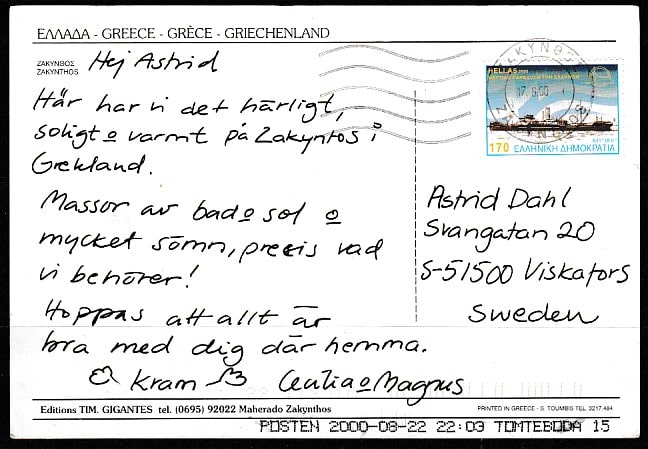 ΕΛΛΑΔΑ - GREECE - GRÈCE - GRIECHENLAND
ΖΑΚΥΝΘΟΣ
ZAKYNTHOS
Hej Astrid
Här har vi det härligt,
soligt o varmt på Zakyntos i
Grekland.
Massor av bad o sol o
mycket sömn, precis vad
vi behöver!
Hoppas att allt är
bra med dig där hemma.
Kram Cecilia o Magnus
HELLAS
170 ΕΛΛΗΝΙΚΗ ΔΗΜΟΚΡΑΤΙΑ
Astrid Dahl
Svangatan 20
S-51500 Viskafors
Sweden
Editions TIM. GIGANTES tel. (0695) 92022 Maherado Zakynthos
PRINTED IN GREECE - S. TOUMBIS TEL. 3217.484
POSTEN 2000-08-22 22:03 TOMTEBODA 15